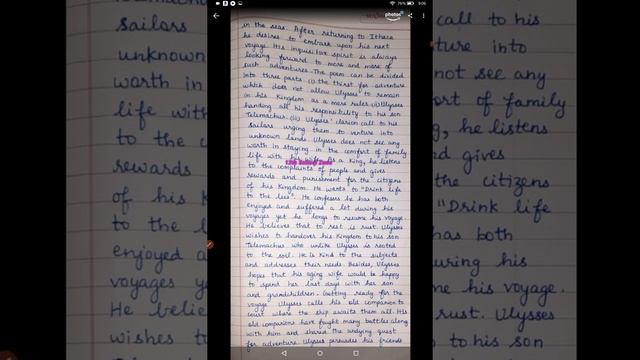 76% 9:06
photos
in the seas. After returning to Ithaca
he desires to embark upon his next
voyage. His inquisitive spirit is always
looking forward to more and more of
such adventures. The poem can be divided
into three parts (i) the thirst for adventure
which does not allow Ulysses to remain
in his Kingdom as a mere ruler (ii) Ulysses
handing all his responsibility to his son
Telemachus. (iii) Ulysses' clarion call to his
sailors urging them to venture into
unknown lands. Ulysses does not see any
worth in staying in the comfort of family
life with his wife. As a King, he listens
to the complaints of people and gives
rewards and punishment for the citizens
of his Kingdom. He wants to "Drink life
to the lees". He confesses he has both
enjoyed and suffered a lot during his
voyages yet he longs to resume his voyage.
He believes that to rest is rust. Ulysses
wishes to handover his Kingdom to his son
Telemachus who unlike Ulysses is rooted
to the soil. He is kind to the subjects
and addresses their needs. Besides, Ulysses
hopes that his aging wife would be happy
to spend her last days with her son
and grandchildren. Getting ready for the
voyage Ulysses calls his old companion to
court where the ship awaits them all. His
old companions have fought many battles along
with him and shared the undying quest
for adventure. Ulysses persuades his friends
sailors
unknown
worth in
life with
to the c
rewards
of his K
to the l
enjoyed a
voyages y
He believ
wishes to
call to his
ture into
not see any
ort of family
g, he listens
nd gives
the citizens
"Drink life
has both
uring his
me his voyage.
rust. Ulysses
to his son